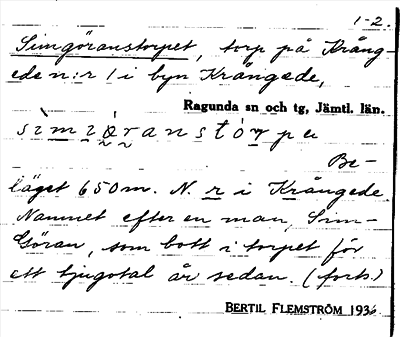 1-2.
Simgöranstorpet, torp på Krång-
ede n:r 1 i byn Krångede,
Ragunda sn och tg, Jämtl. län.
Be-
läget 650 m. N. r i Krångede.
Namnet efter en man, Sim-
Göran, som bott i torpet för
ett tjugotal år sedan. (forts.)
BERTIL FLEMSTRÖM 1936.